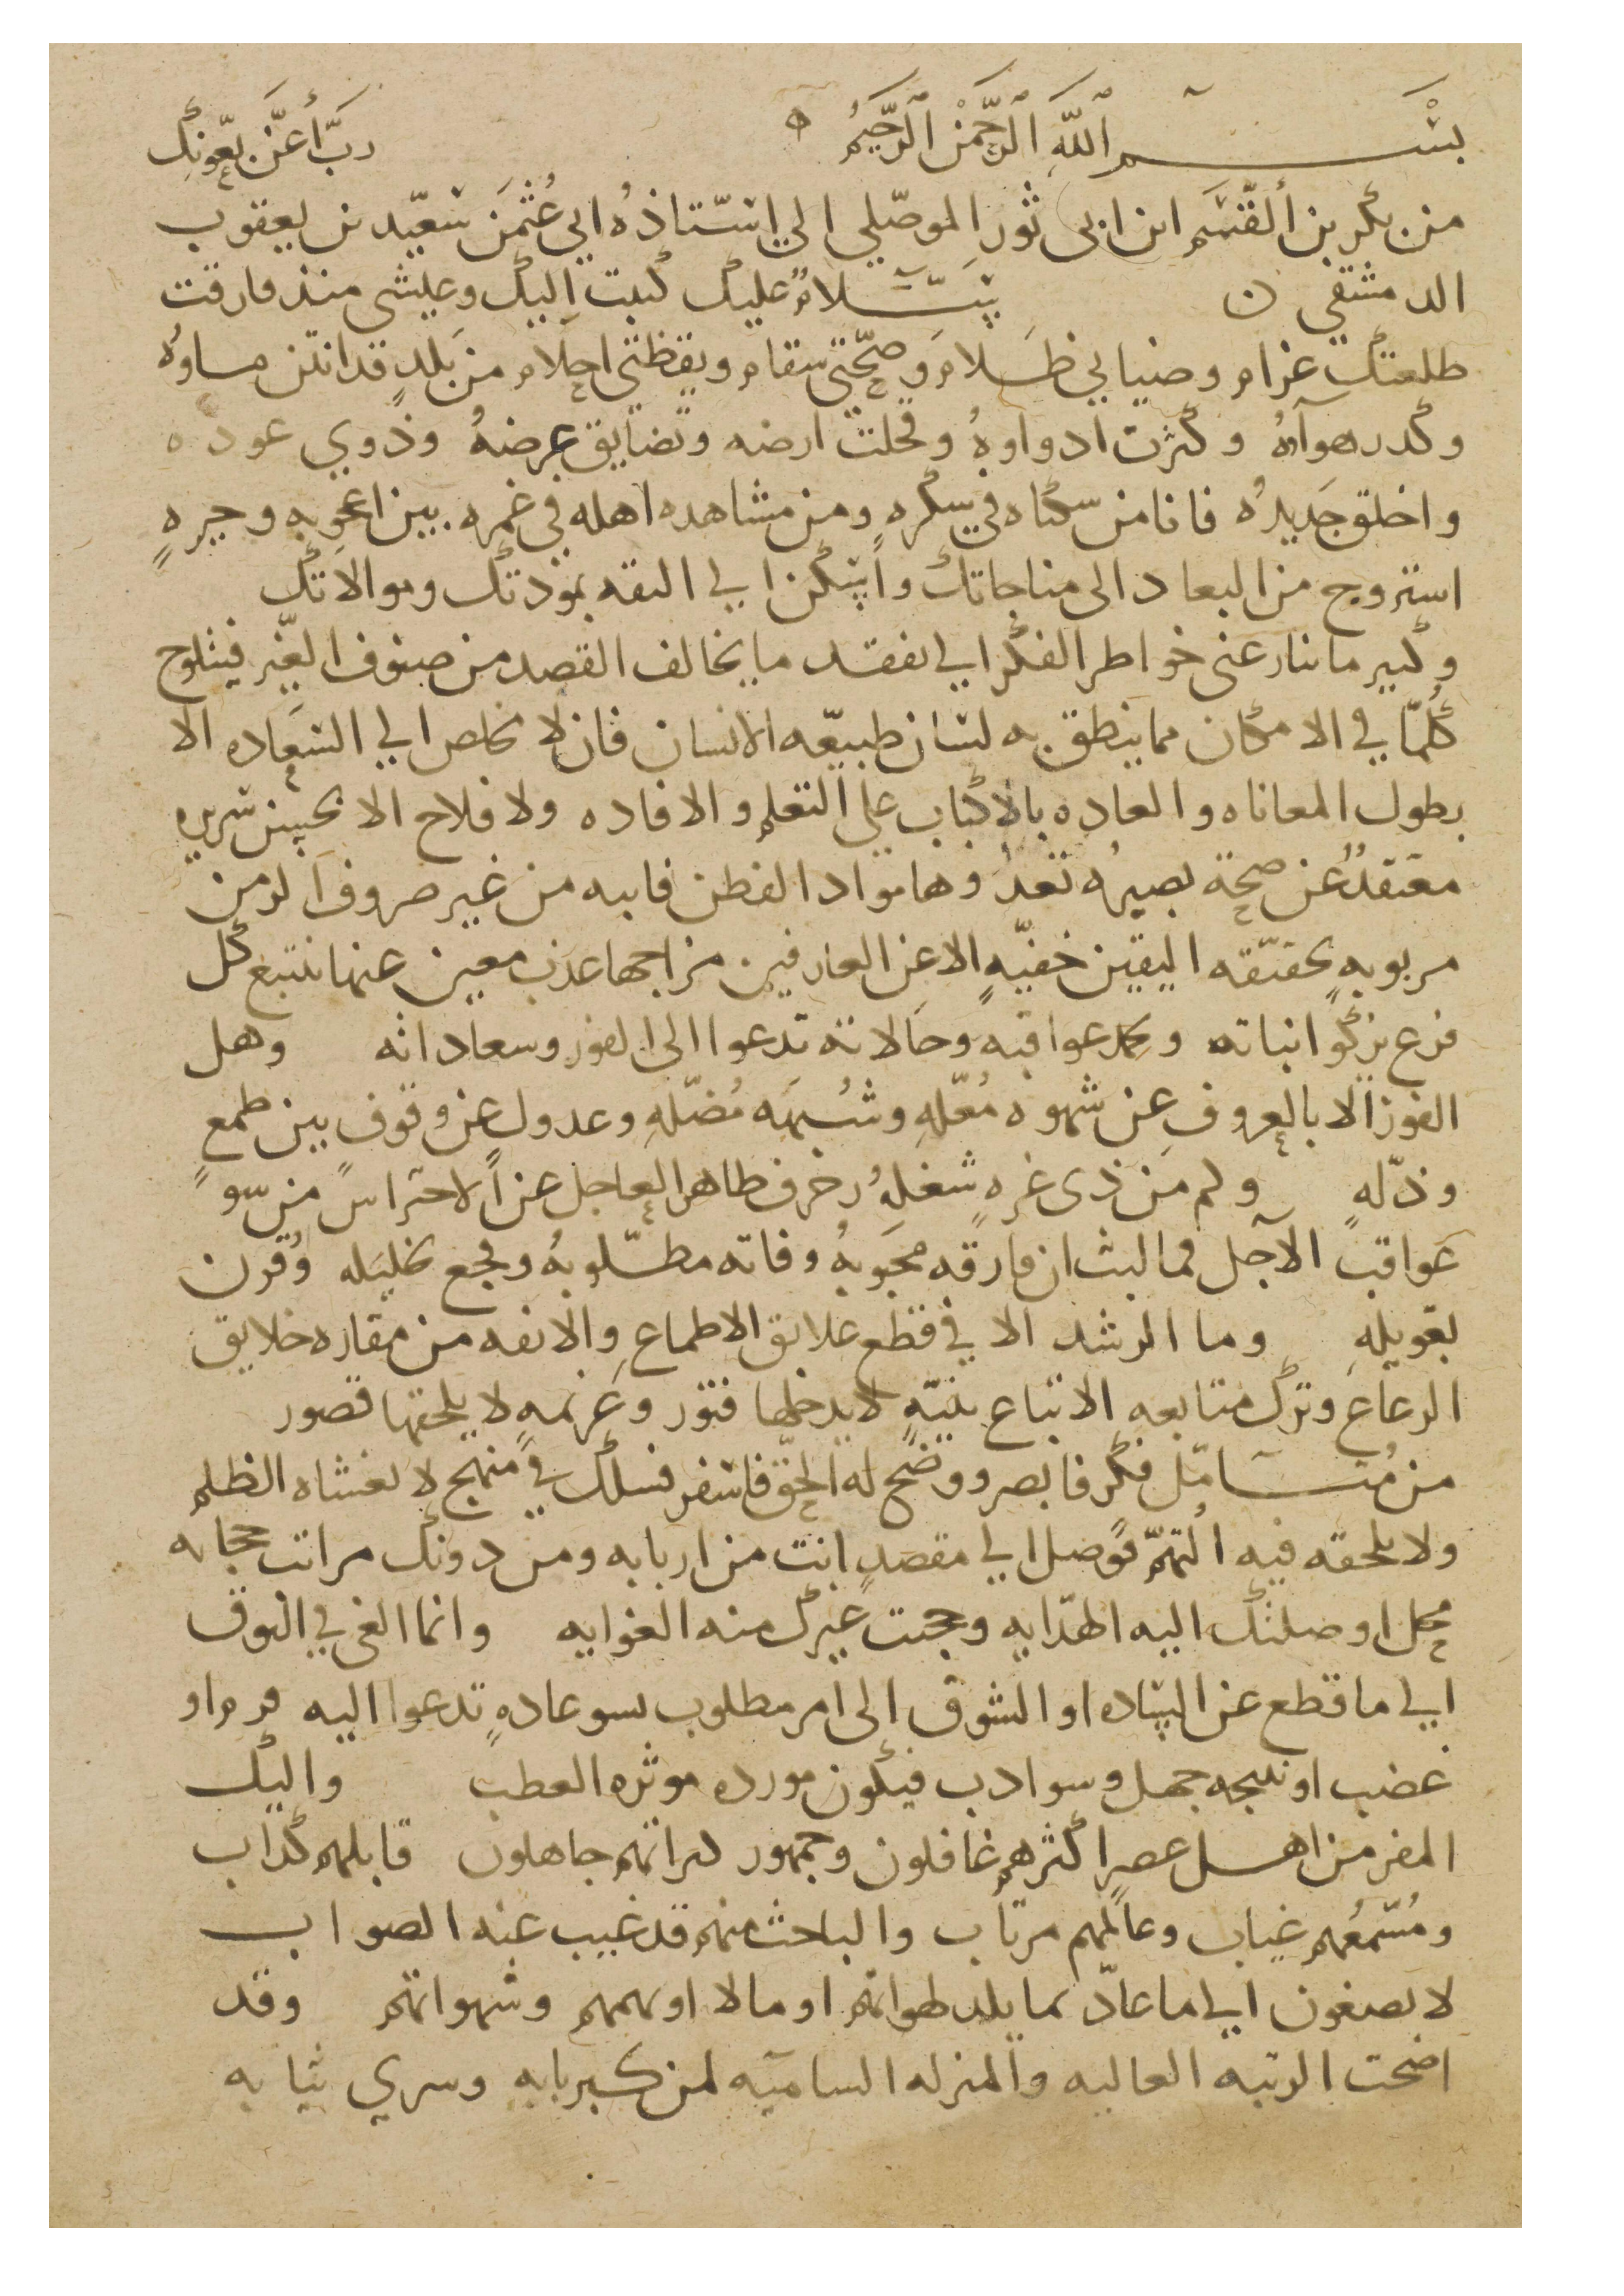 بسم الله الرحمن الرحيم ه رب أعن بعونك
من بكر بن القسم ابن ابي ثور الموصلي الى استاذه ابي عثمن سعيد بن يعقوب
الدمشقي ن سلام عليك كتبت اليك وعيشى منذ فارقت
طلعتك غرام وضيايي ظلام وصحتى سقام ويقظتي احلام من بلد قد انتن ماوه
وكدر هوآه وكثرت ادواوه وقحلت ارضه وتضايق عرضه وذوي عوده
واخلق جديده فانا من سكناه في سكره ومن مشاهده اهله في غمره بين اعجوبه وحيره
استروح من البعاد الى مناجاتك واستكن الي الثقه بمودتك وموالاتك
وكثير ما تنازعني خواطر الفكر الي تفقد ما يخالف القصد من صنوف الغير فيتلوح
كلما في الامكان مما ينطق به لسان طبيعه الانسان فان لا تخلص الي السعاده الا
بطول المعاناه والعاده بالاكباب علي التعلم والافاده ولا فلاح الا بحسن سريره
معتقد عن صحة بصيره تعد وها مواد الفطن فانيه من غير صروف الزمن
مربوبه بحقيقه اليقين خفيه الا عن العارفين مزاجها عذب معين عنها ينتبع كل
فرع يزكو انباته ويحمد عواقبه وحالاته تدعوا الى الفوز وسعاداته وهل
الفوز الا بالعزوف عن شهوه معله وشبهه مضله وعدول عن وقوف بين طمع
وذله وكم من ذى غره شغله زخرف ظاهر العاجل عن الاحتراس من سو
عواقب الآجل فما لبث ان فارقه محبوبه وفاته مطلوبه وفجع بخليله وقرن
بعويله وما الرشد الا في قطع علايق الاطماع والانفه من مقاره خلايق
الرعاع وترك متابعه الاتباع بنيه لا يدخلها فتور وعزيمه لا يلحقها قصور
من متامل فكر فابصر ووضح له الحق فاسفر فسلك في منهج لا تغشاه الظلم
ولا يلحقه فيه التهم فوصل الي مقصد انت من اربابه ومن دونك مراتب حجابه
محل اوصلتك اليه الهدايه وحجبت غيرك منه الغوايه وانما الغى في التوق
الي ما قطع عن السياده او الشوق الى امر مطلوب بسو عاده تدعوا اليه قرم او
غضب او نتيجه جهل وسو ادب فيكون مورده موثره العطب واليك
المفر من اهل عصر اكثرهم غافلون وجمهور سراتهم جاهلون قايلهم كذاب
ومستمعهم غياب وعالمهم مرتاب والباحث منهم قد غيب عنه الصواب
لا يصغون الي ما عاد بما يلد لهواتهم او مالا او نهمهم وشهواتهم وقد
اضحت الرتبه العاليه والمنزله الساميه لمن كبر بابه وسري ثيابه